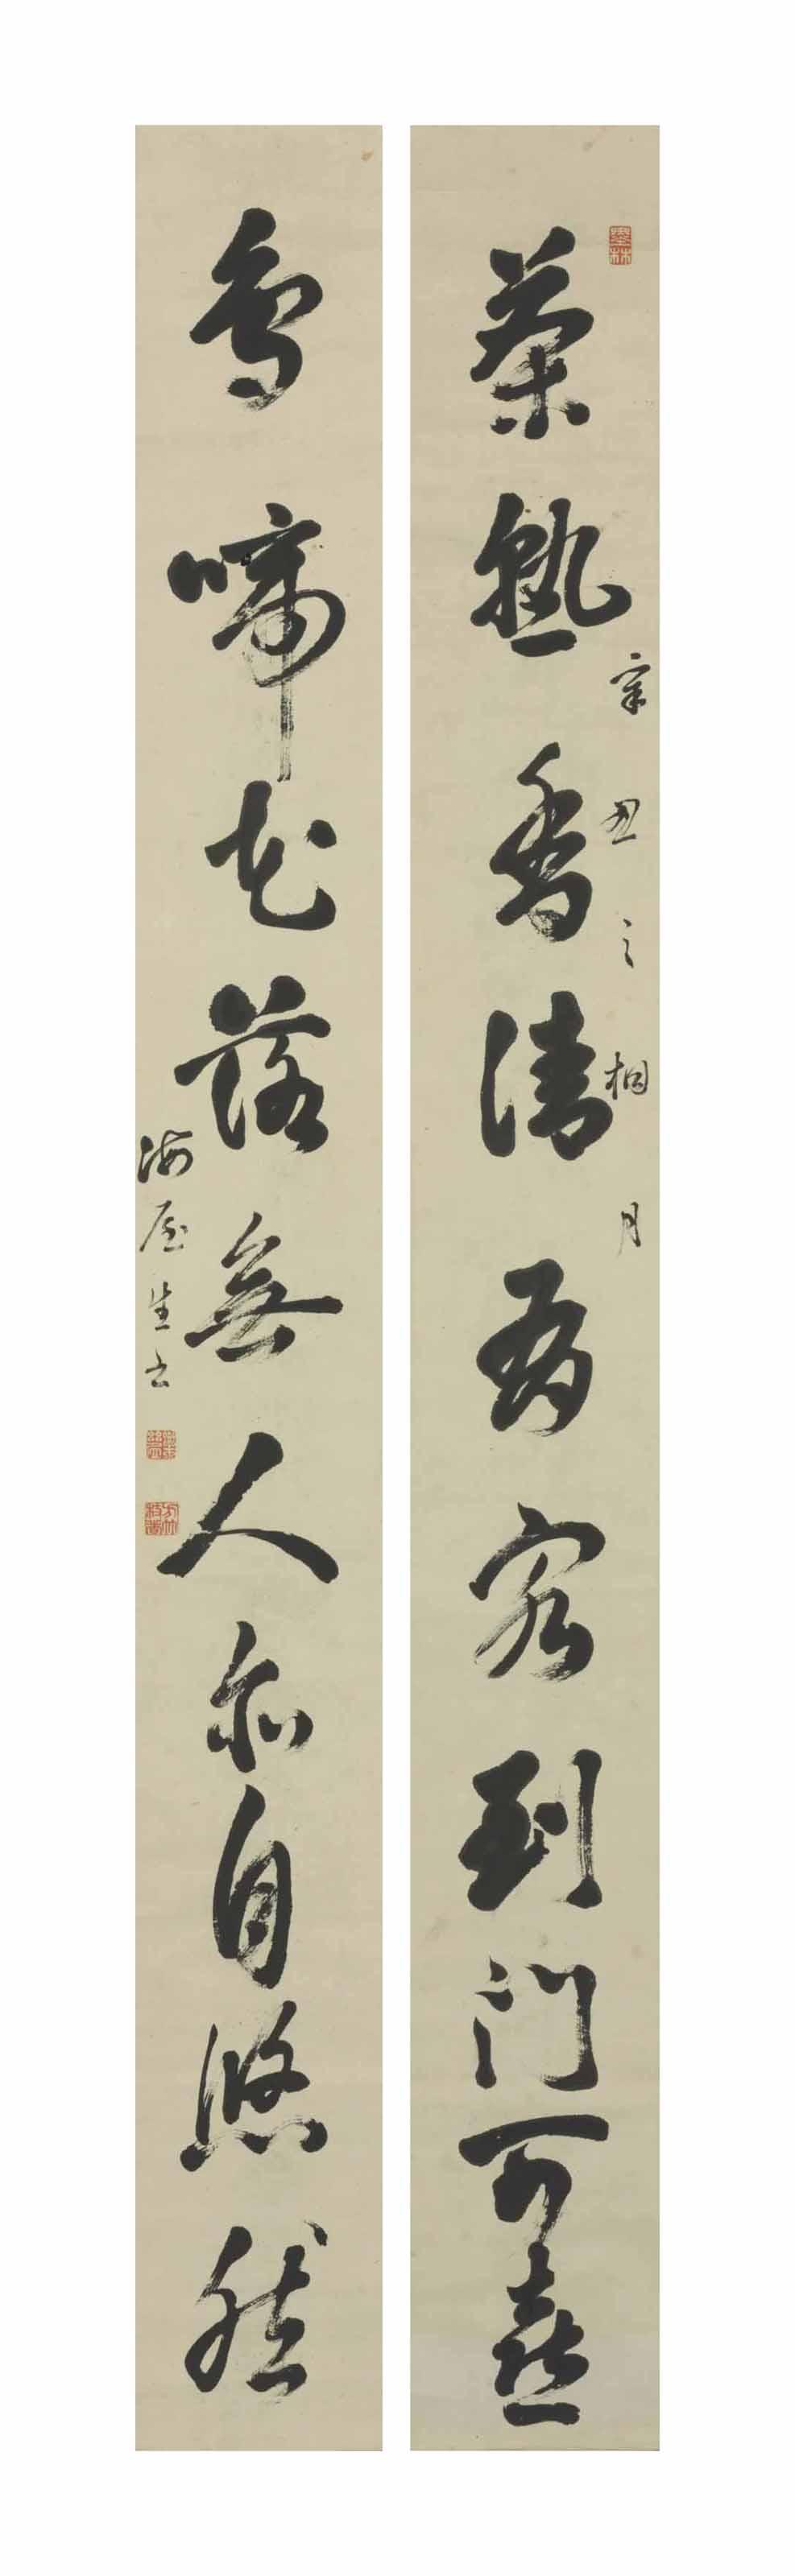 辛丑之相月
茶熟香清有客到門可喜
鳥啼花落無人亦自悠然
海屋生書